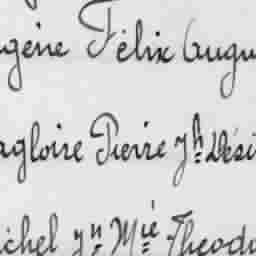 gène Félix Augu
agloire Pierre Jh Dési
ichel Jn Mie Théodo